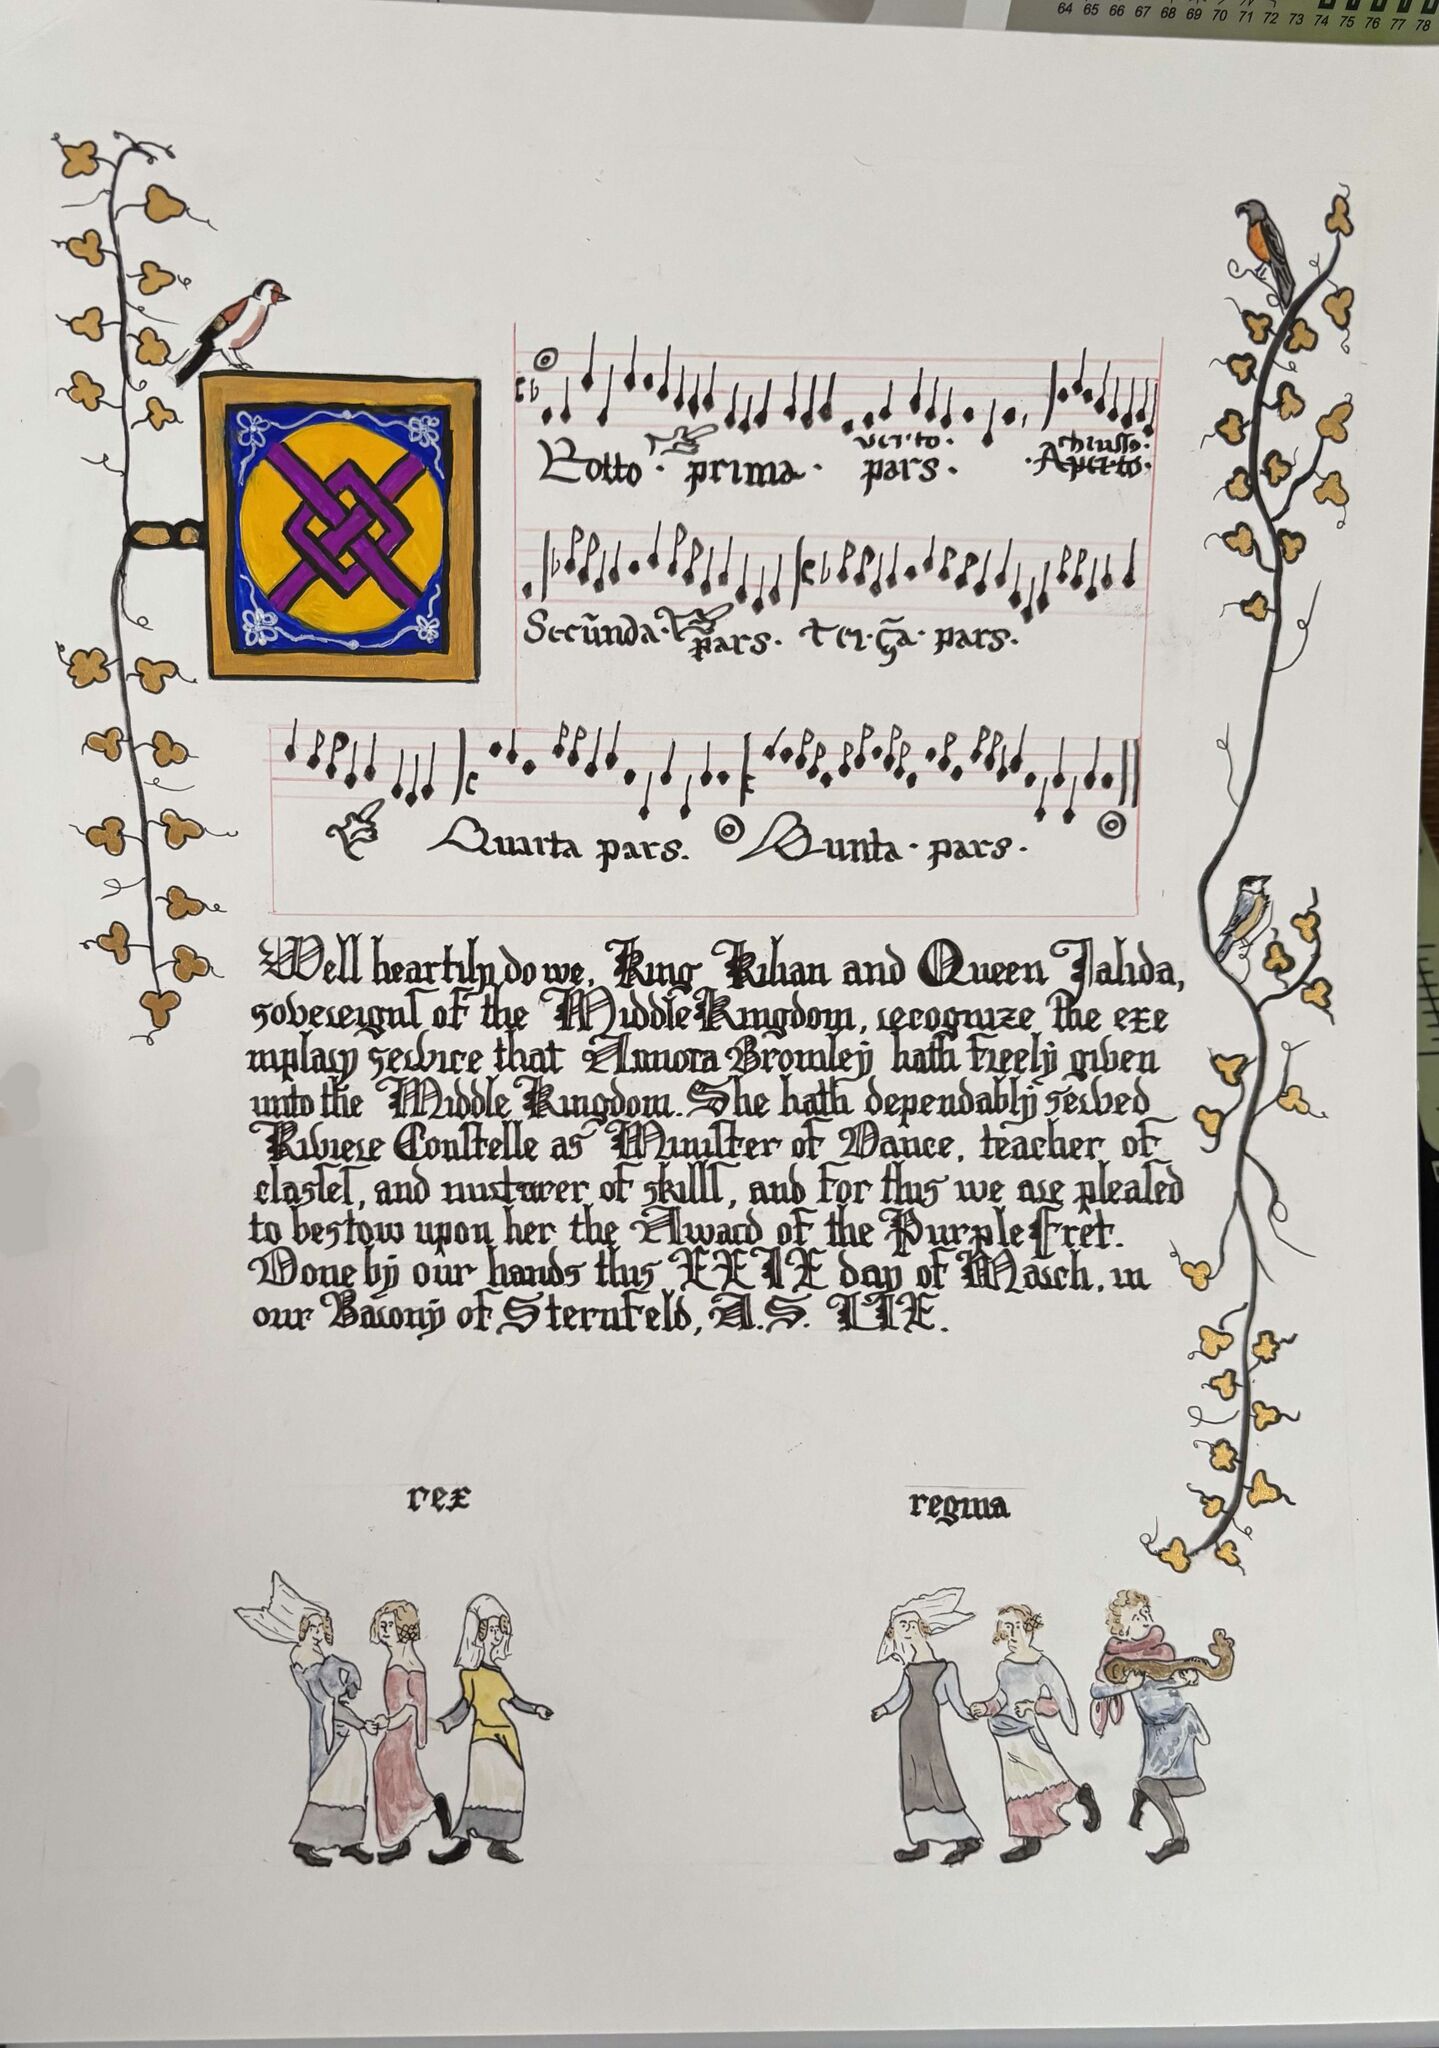 64 65 66 67 68 69 70 71 72 73 74 75 76 77 78
verto · chiusso ·
Botto · prima · pars · · Aperto ·
Secũnda · pars · terça · pars ·
Quarta pars · Quinta · pars ·
Well heartily do we, King Kilian and Queen Jalida,
sovereigns of the Middle Kingdom, recognize the exe
mplary service that Annora Bromley hath freely given
unto the Middle Kingdom. She hath dependably served
Riviere Constelle as Minister of Dance, teacher of
classes, and nurturer of skills, and for this we are pleased
to bestow upon her the Award of the Purple Fret.
Done by our hands this XXIX day of March, in
our Barony of Sternfeld, A.S. LIX.
rex regina